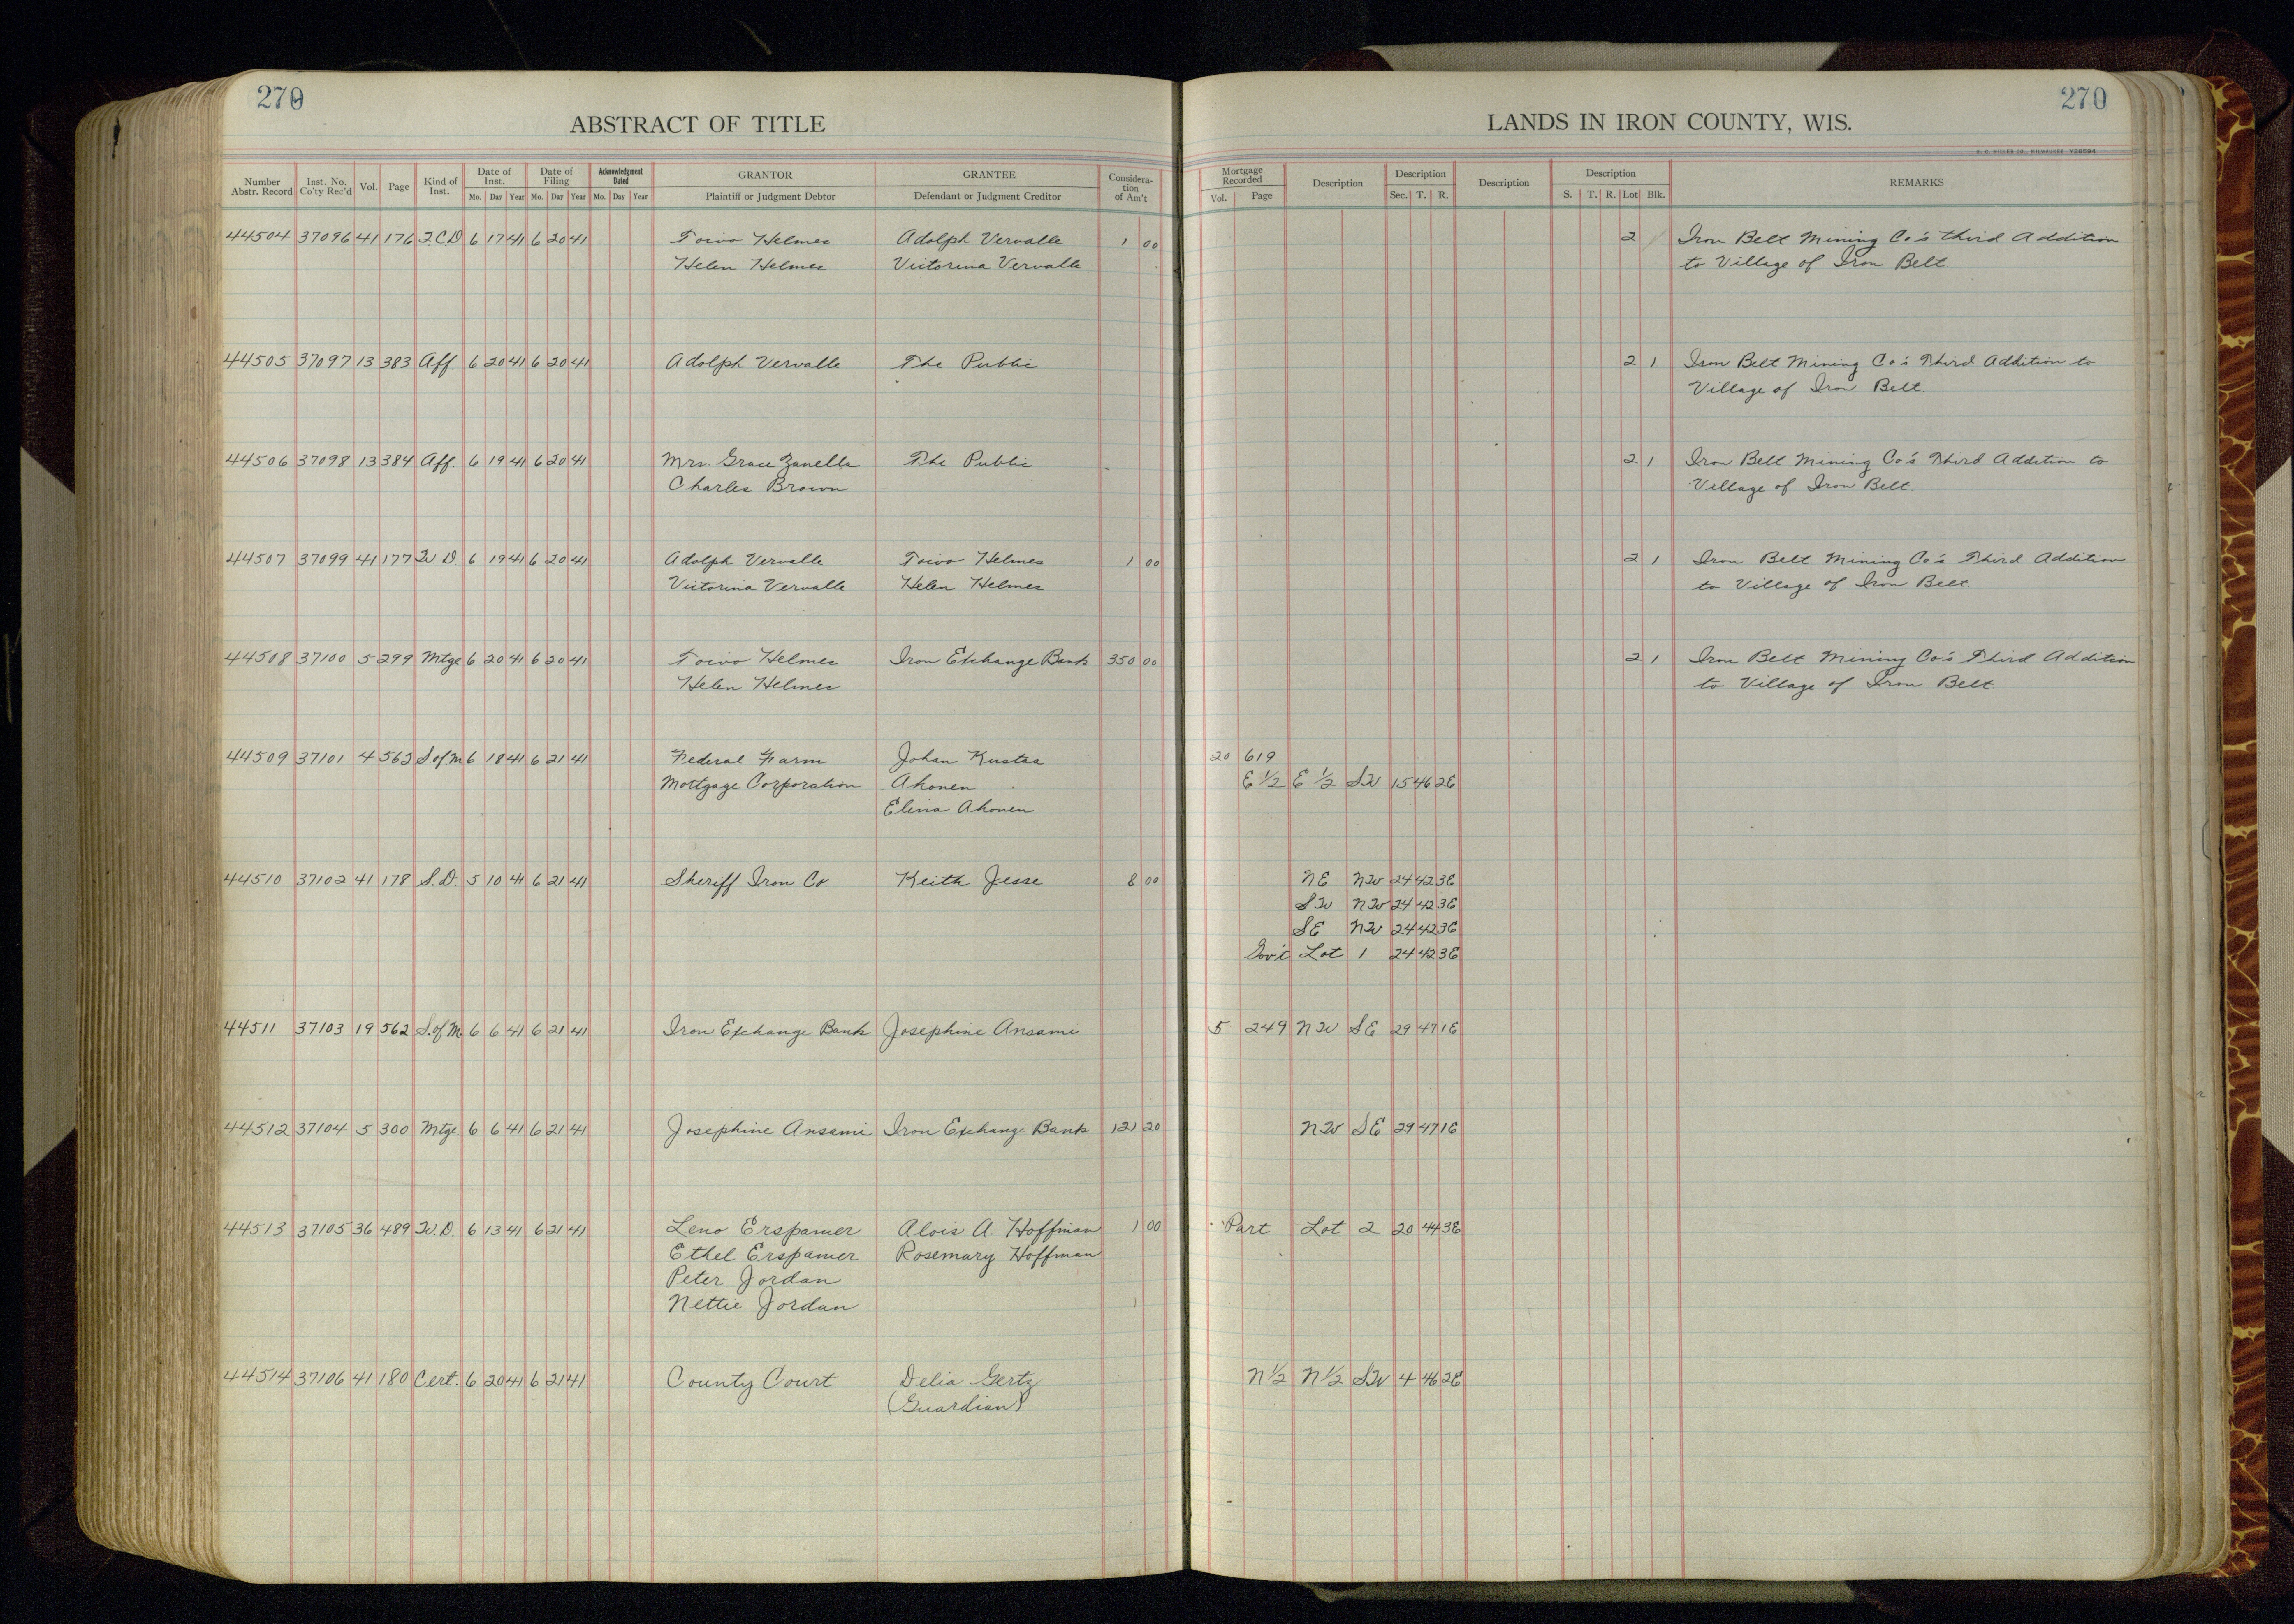 270
ABSTRACT OF TITLE
LANDS IN IRON COUNTY, WIS.
270
H. C. MILLER CO., MILWAUKEE Y28594
Number Abstr. Record | Inst. No. Co'ty Rec'd | Vol. | Page | Kind of Inst. | Date of Inst. Mo. Day Year | Date of Filing Mo. Day Year | Acknowledgment Dated Mo. Day Year | GRANTOR Plaintiff or Judgment Debtor | GRANTEE Defendant or Judgment Creditor | Consideration of Am't | Mortgage Recorded Vol. Page | Description | Description Sec. T. R. | Description | Description S. T. R. Lot Blk. | REMARKS
44504 37096 41 176 Q.C.D 6 17 41 6 20 41 Toivo Helmes Adolph Vervalle 1 00 2 Iron Belt Mining Co's third Addition
Helen Helmes Victorina Vervalle to Village of Iron Belt.
44505 37097 13 383 Aff. 6 20 41 6 20 41 Adolph Vervalle The Public 2 1 Iron Belt Mining Co's Third Addition to
Village of Iron Belt.
44506 37098 13 384 Aff. 6 19 41 6 20 41 Mrs. Grace Zanella The Public 2 1 Iron Belt Mining Co's Third Addition to
Charles Brown Village of Iron Belt.
44507 37099 41 177 W D 6 19 41 6 20 41 Adolph Vervalle Toivo Helmes 1 00 2 1 Iron Belt Mining Co's Third Addition
Victorina Vervalle Helen Helmes to Village of Iron Belt.
44508 37100 5 299 Mtge 6 20 41 6 20 41 Toivo Helmes Iron Exchange Bank 350 00 2 1 Iron Belt Mining Co's Third Addition
Helen Helmes to Village of Iron Belt.
44509 37101 4 563 S.of M 6 18 41 6 21 41 Federal Farm Johan Kustaa 20 619
Mortgage Corporation Ahonen E 1/2 E 1/2 SW 15 46 2E
Elina Ahonen
44510 37102 41 178 S.D. 5 10 41 6 21 41 Sheriff Iron Co. Keith Jesse 8 00 NE NW 24 42 3E
SW NW 24 42 3E
SE NW 24 42 3E
Gov't Lot 1 24 42 3E
44511 37103 19 562 S.of M. 6 6 41 6 21 41 Iron Exchange Bank Josephine Ansami 5 249 NW SE 29 47 1E
44512 37104 5 300 Mtge. 6 6 41 6 21 41 Josephine Ansami Iron Exchange Bank 121 20 NW SE 29 47 1E
44513 37105 36 489 W.D. 6 13 41 6 21 41 Leno Erspamer Alois A. Hoffman 1 00 Part Lot 2 20 44 3E
Ethel Erspamer Rosemary Hoffman
Peter Jordan
Nettie Jordan
44514 37106 41 180 Cert. 6 20 41 6 21 41 County Court Delia Gertz N 1/2 N 1/2 SW 4 46 2E
(Guardian)